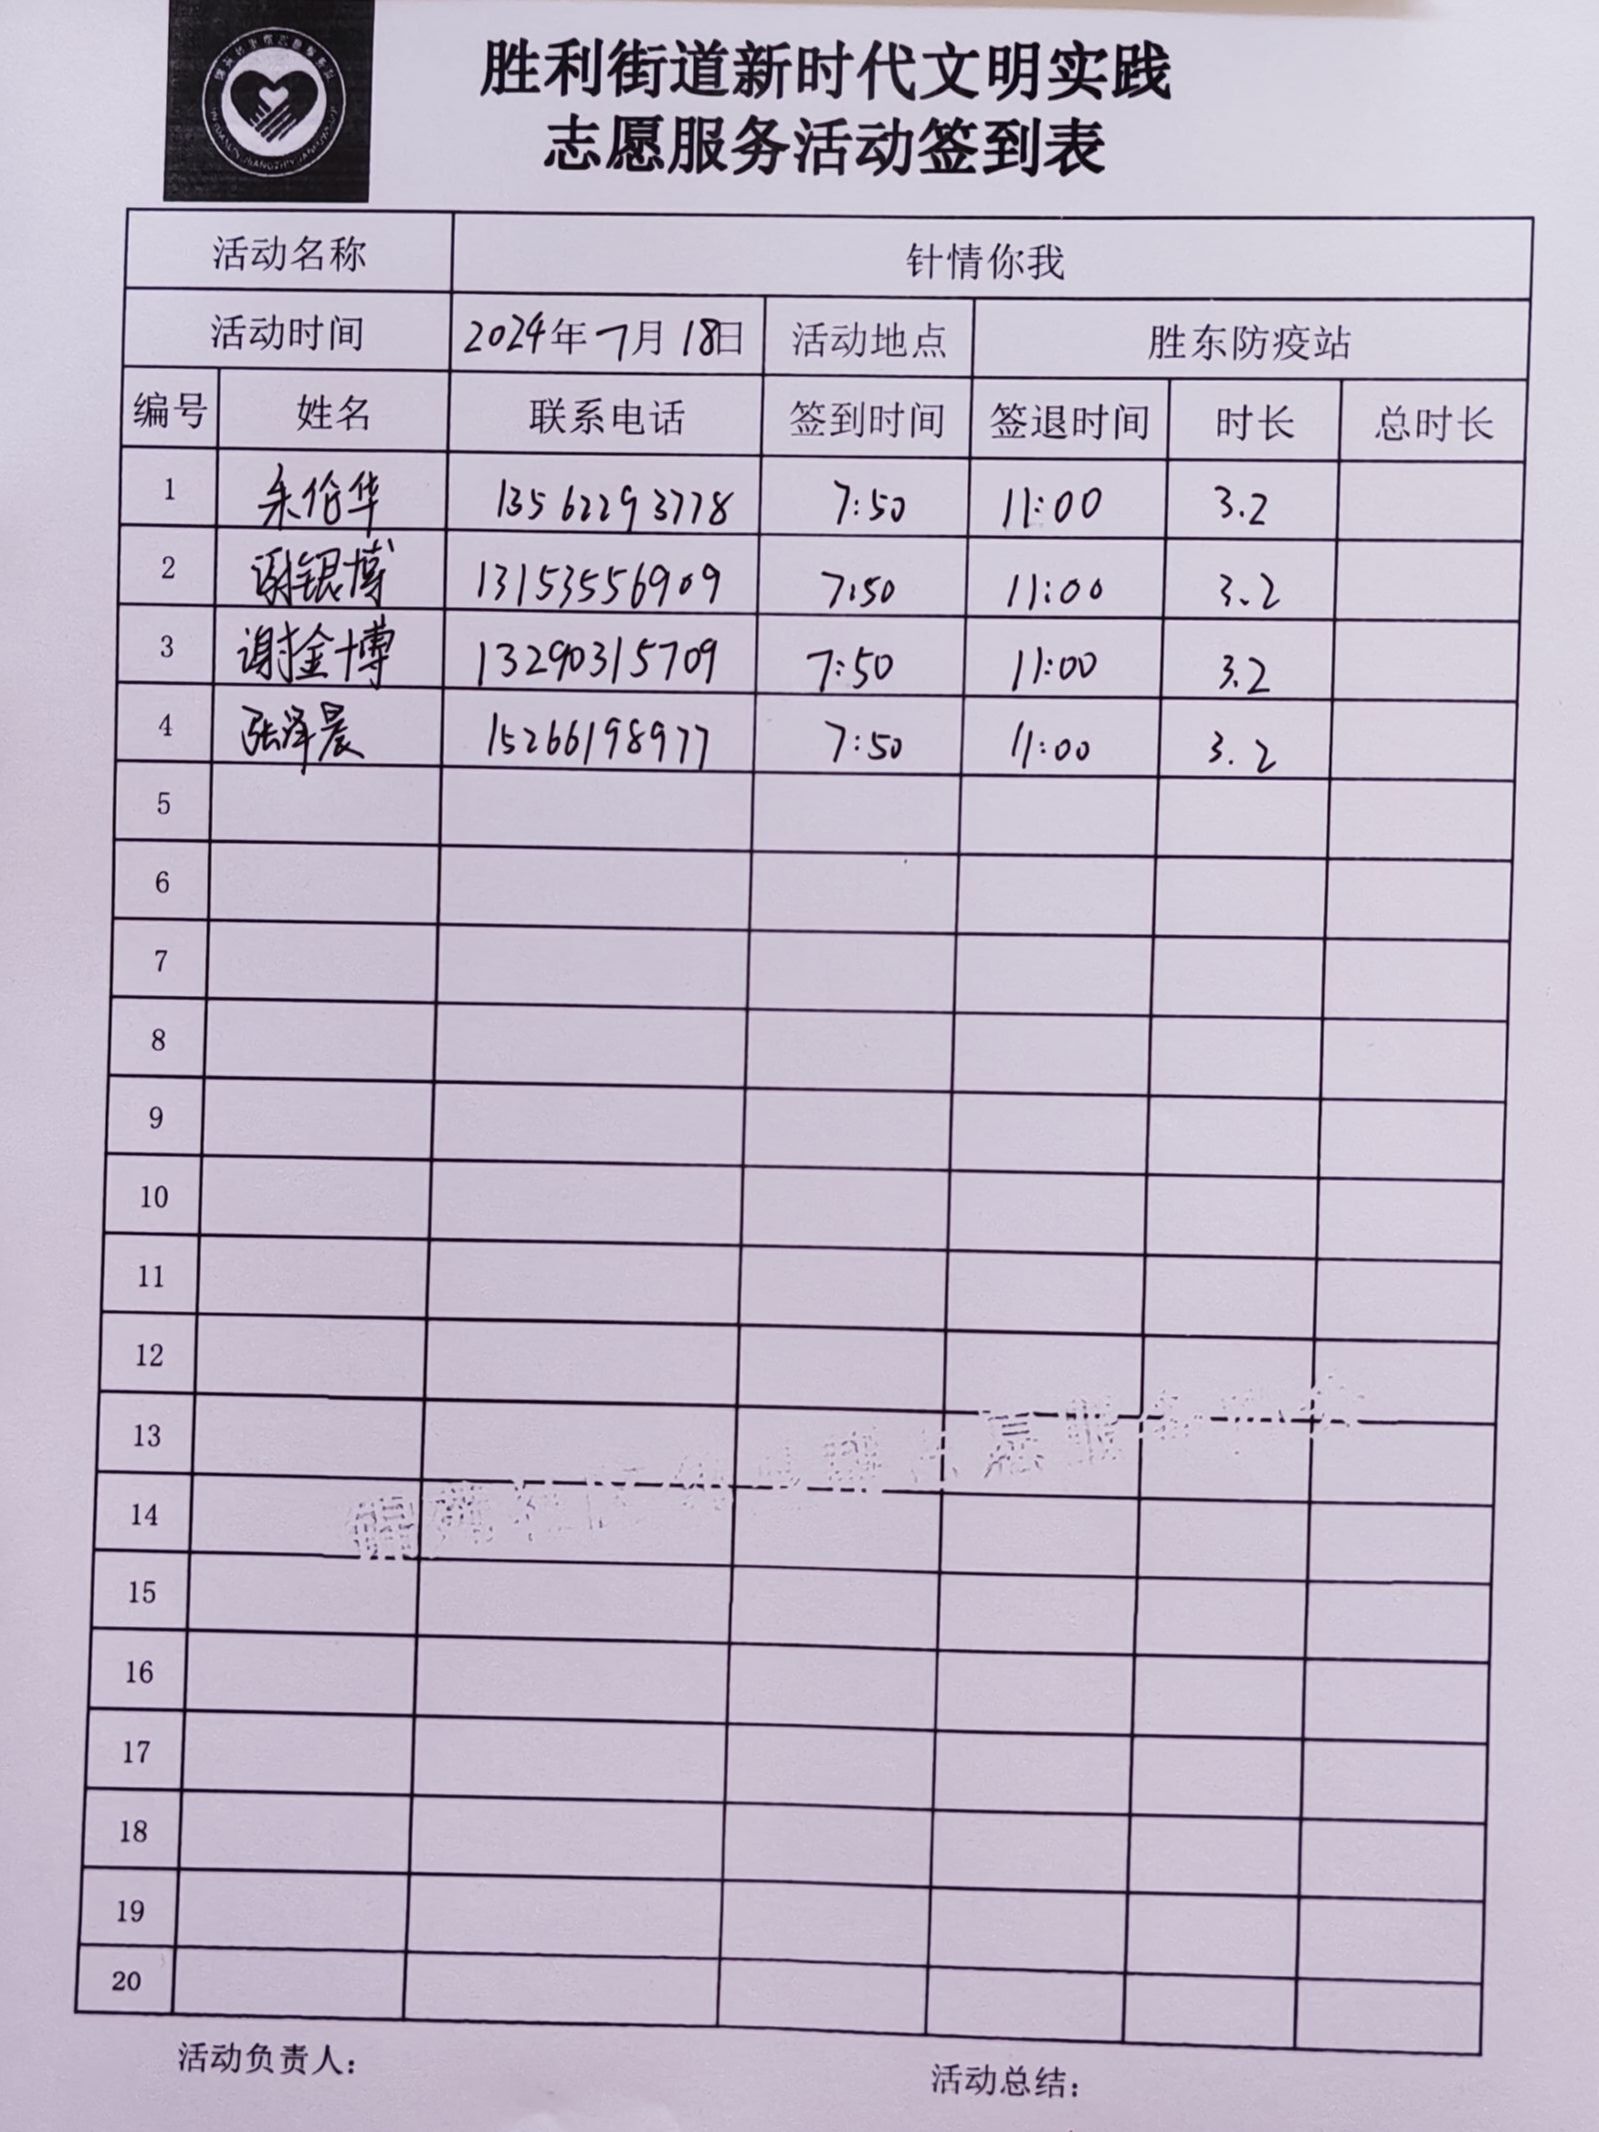 胜利街道新时代文明实践
志愿服务活动签到表
活动名称 针情你我
活动时间 2024年7月18日 活动地点 胜东防疫站
编号 姓名 联系电话 签到时间 签退时间 时长 总时长
1 朱伦华 13562293778 7:50 11:00 3.2
2 谢银博 13153556909 7:50 11:00 3.2
3 谢金博 13290315709 7:50 11:00 3.2
4 张泽晨 15266198977 7:50 11:00 3.2
5
6
7
8
9
10
11
12
13
14
15
16
17
18
19
20
活动负责人：
活动总结：